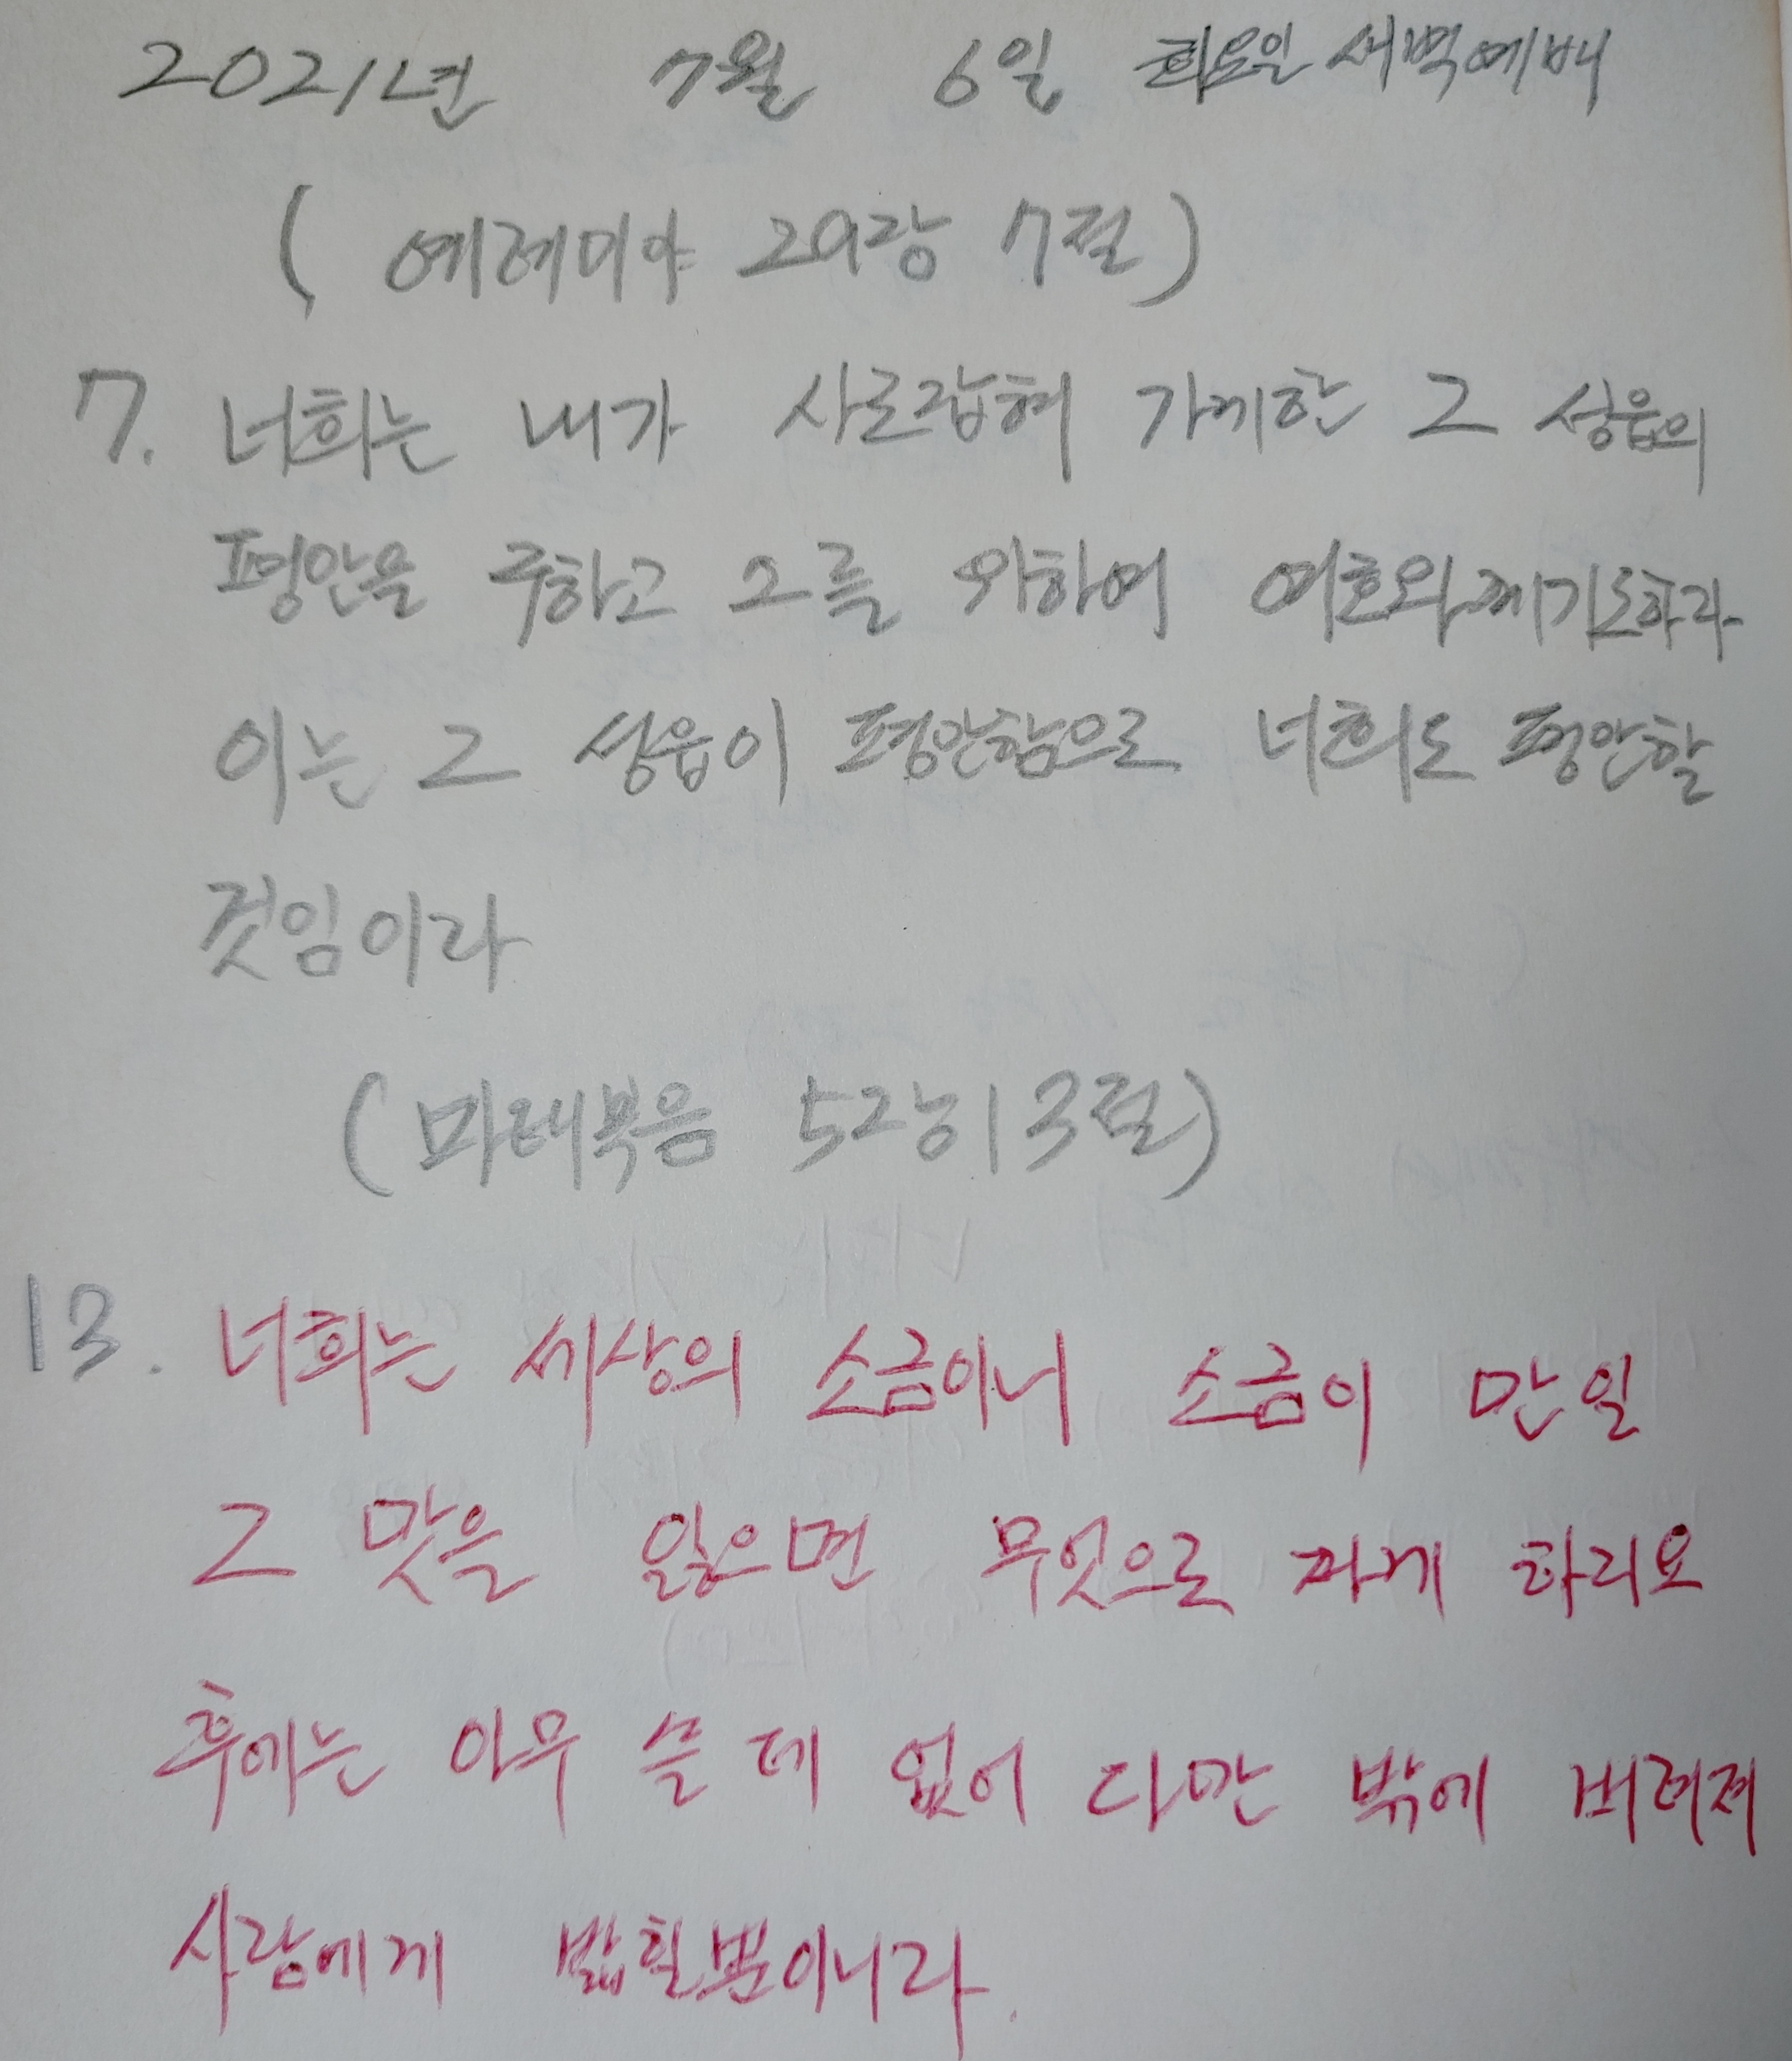 2021년 7월 6일 화요일 새벽예배
( 예레미야 29장 7절 )
7. 너희는 내가 사로잡혀 가게한 그 성읍의
평안을 구하고 그를 위하여 여호와께기도하라
이는 그 성읍이 평안함으로 너희도 평안할
것임이라
( 마태복음 5장13절 )
13. 너희는 세상의 소금이니 소금이 만일
그 맛을 잃으면 무엇으로 짜게 하리요
후에는 아무 쓸 데 없어 다만 밖에 버려져
사람에게 밟힐뿐이니라.